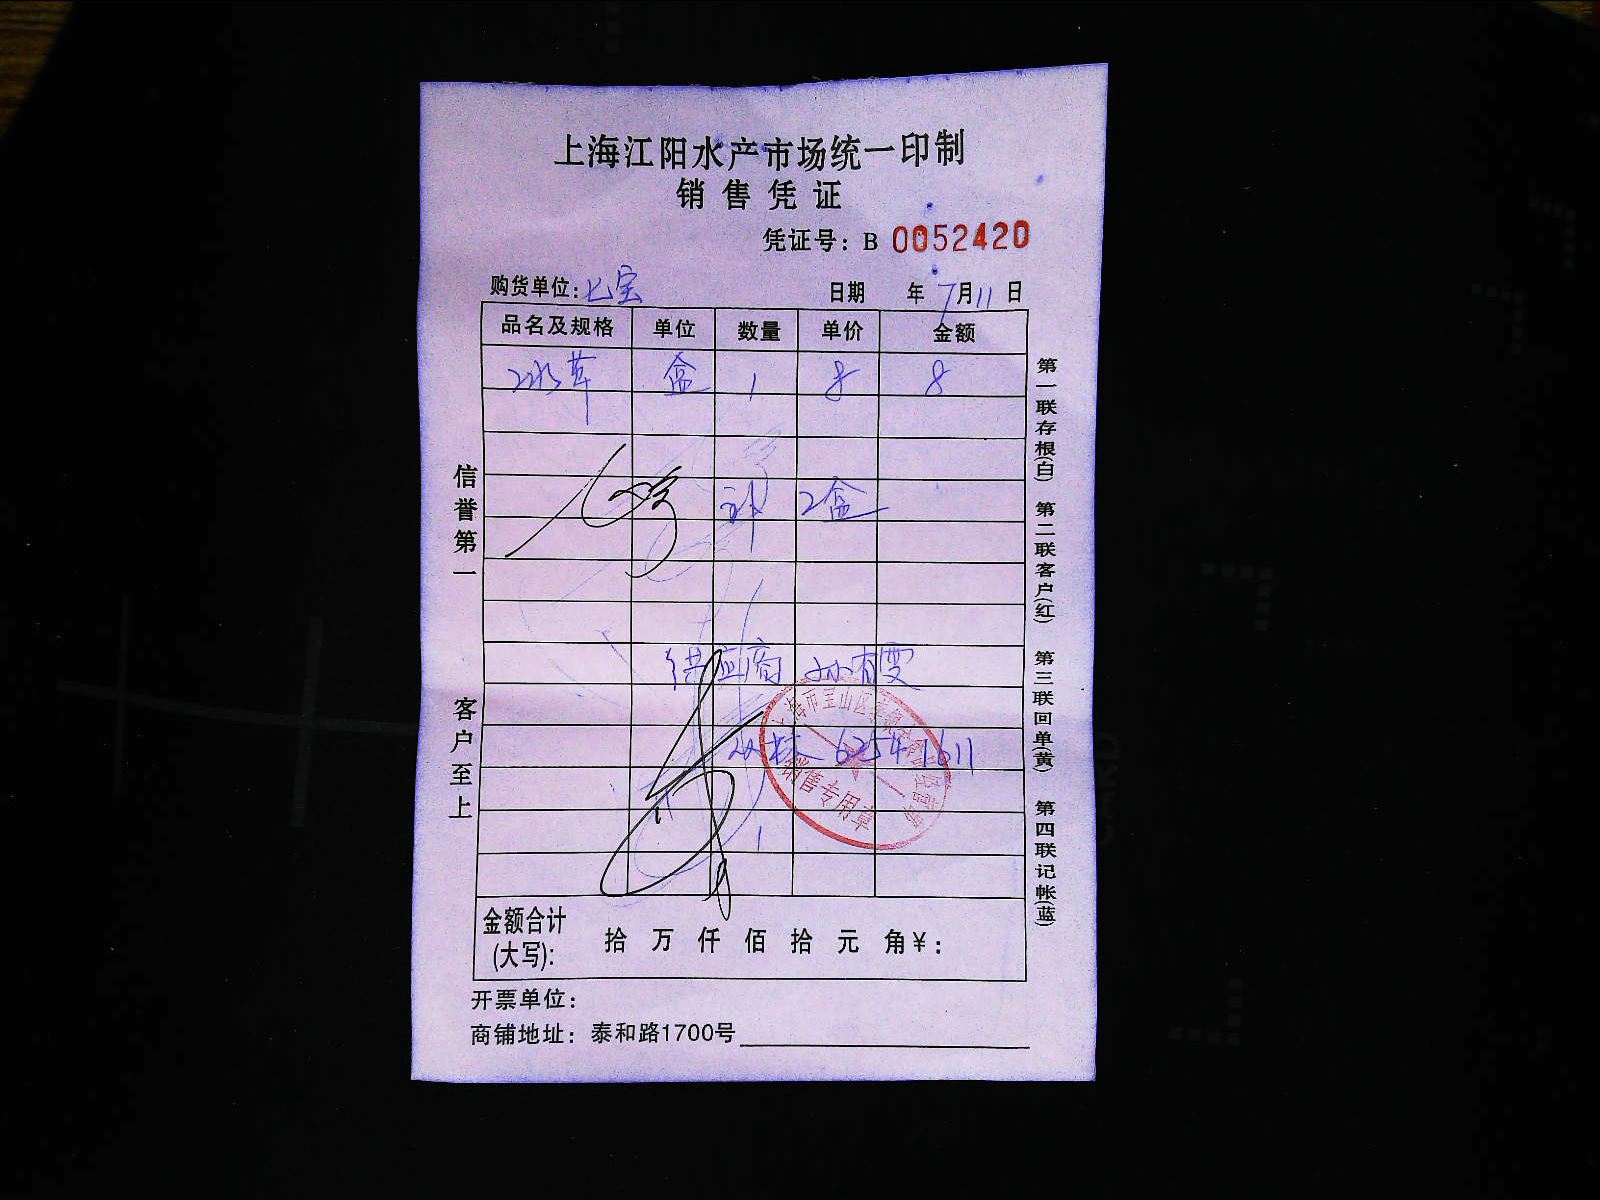 上海江阳水产市场统一印制
销售凭证
凭证号：B 0052420
购货单位：七宝 日期 年 7月11日
品名及规格 单位 数量 单价 金额
冰草 盒 1 8 8
2盒
供应商 孙有雯
6254 1611
销售专用章
金额合计(大写)： 拾 万 仟 佰 拾 元 角 ¥：
开票单位：
商铺地址：泰和路1700号
信誉第一 客户至上
第一联存根(白) 第二联客户(红) 第三联回单(黄) 第四联记帐(蓝)